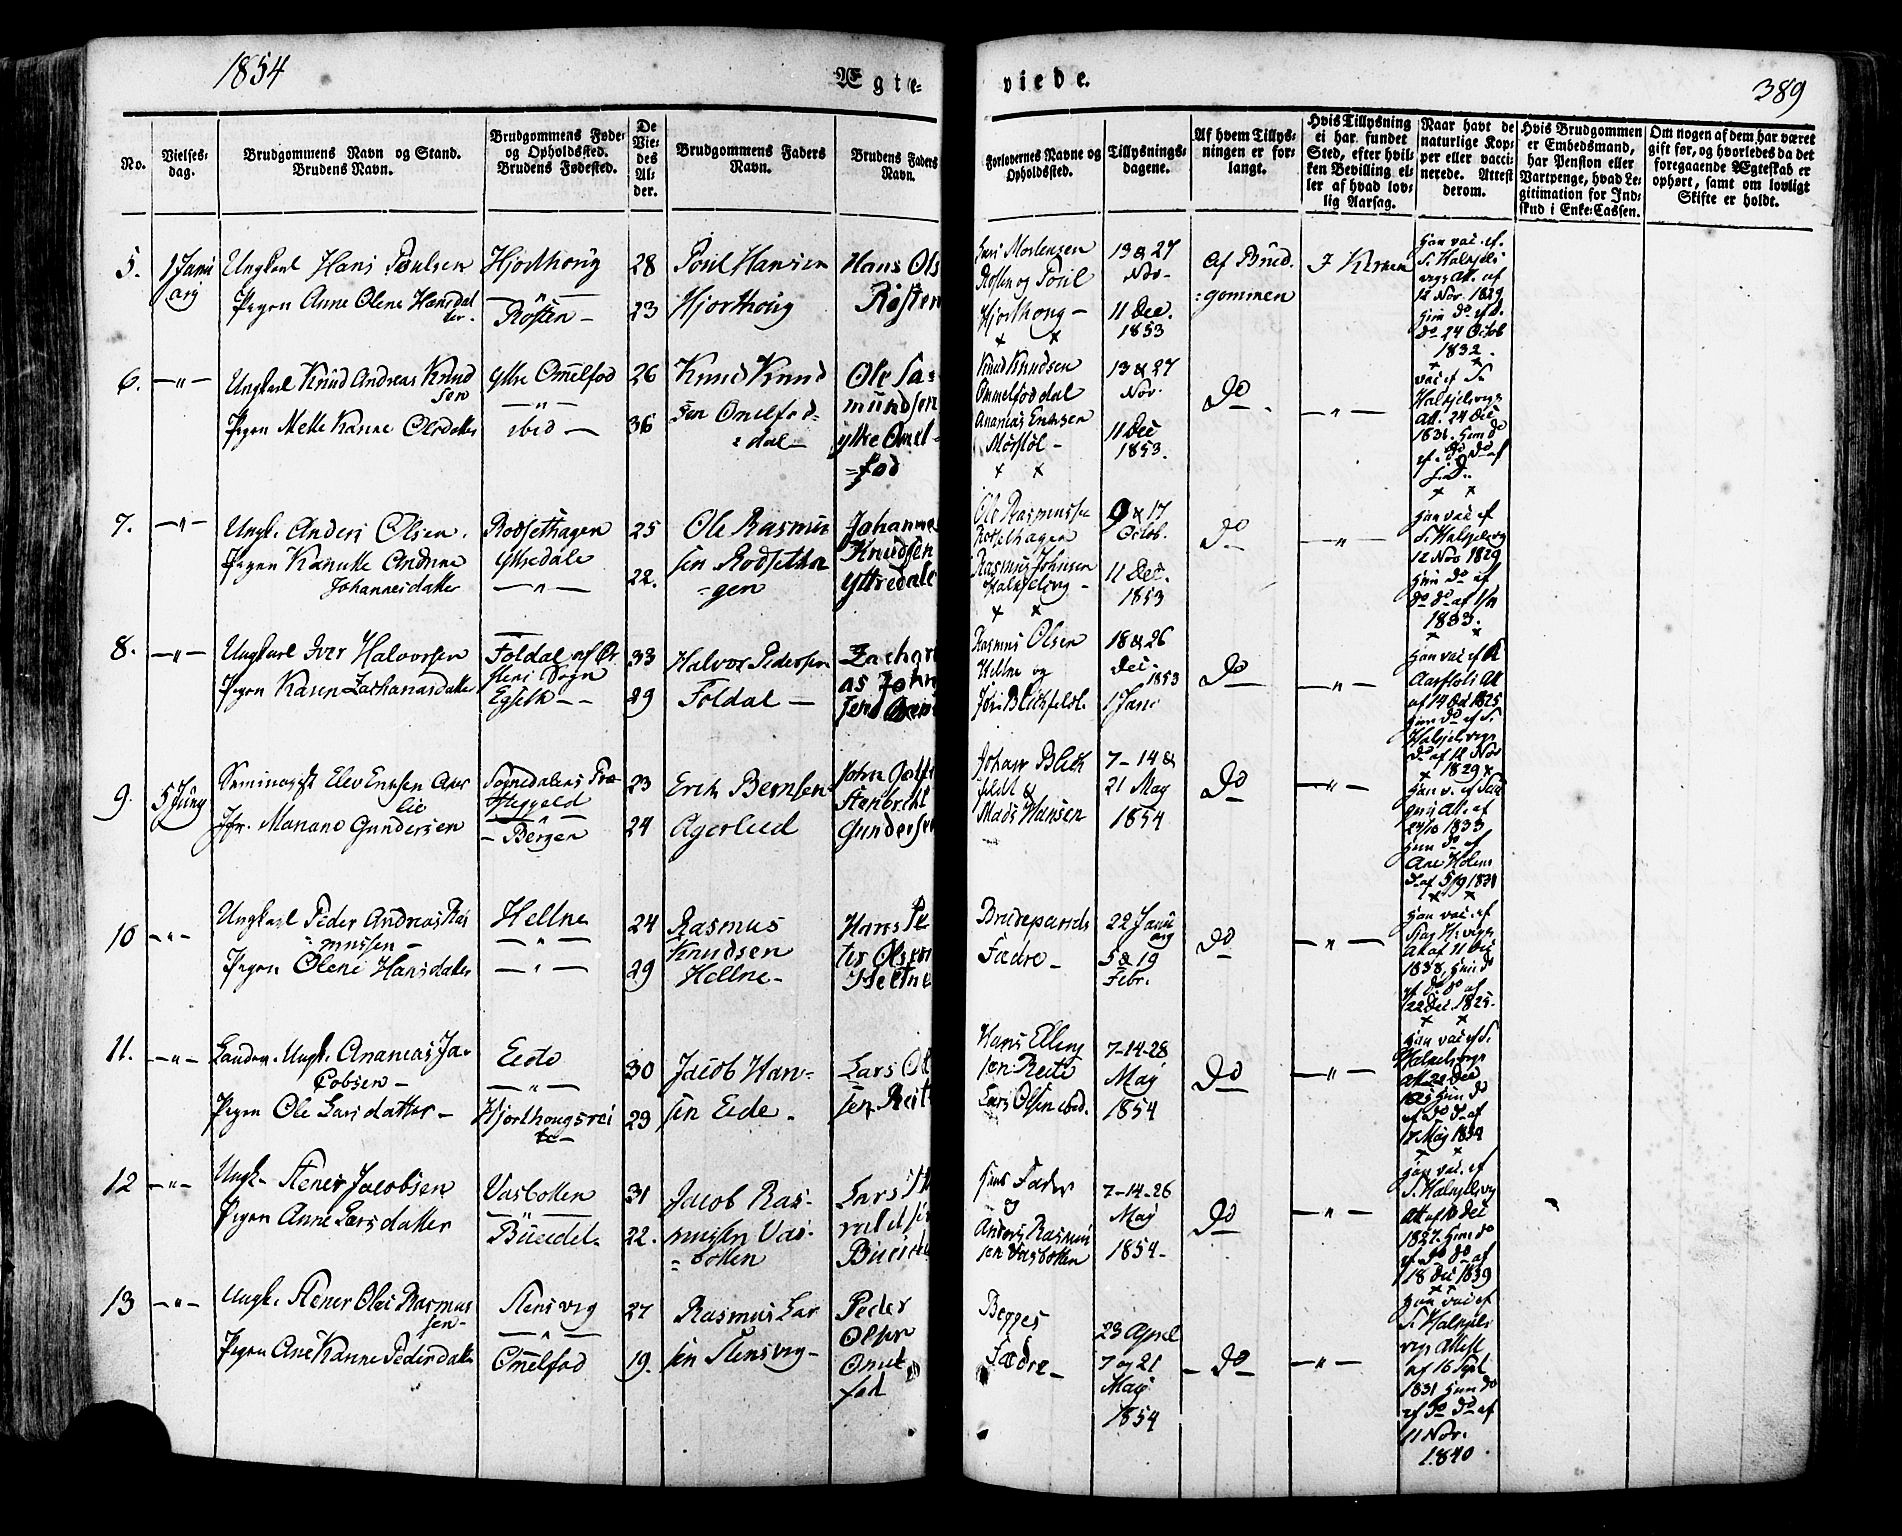 1854
Ægte-
viede.
389
No.
Vielses-
dag.
Brudgommens Navn og Stand.
Brudens Navn.
Brudgommens Føde-
og Opholdssted.
Brudens Fødested.
De
Vie-
des
Al-
der.
Brudgommens Faders
Navn.
Brudens Faders
Navn.
Forlovernes Navne og
Opholdssted.
Tillysnings-
dagene.
Af hvem Tillys-
ningen er for-
langt.
Hvis Tillysning
ei har fundet
Sted, efter hvil-
ken Bevilling el-
ler af hvad lov-
lig Aarsag.
Naar havt de
naturlige Kop-
per eller vacci-
nerede. Attest
derom.
Hvis Brudgommen
er Embedsmand,
har Pension eller
Vartpenge, hvad Le-
gitimation for Ind-
skud i Enke-Cassen.
Om nogen af dem har været
gift før, og hvorledes da det
foregaaende Ægteskab er
ophørt, samt om lovligt
Skifte er holdt.
5.
1 Janu
arij
Ungkarl Hans Poulsen
Pigen Anne Olene Hansdat
ter.
Hjorthoug
— " —
Røsten —
28
23
Poul Hansen
Hjorthoug
Hans Ols
Røsten
Mortensen
Røsten og Poul
Hjorthoug —
x x
13 & 27
Nov.
11 Dec.
1853
Af Brud-
:gommen
I Kirken
Han vac. ef.
S. Halkjels
vigs Att. af
12 Nov. 1829
Hun do ef d.
do 24 Octob
1832.
x x
6.
— " —
Ungkarl Knud Andreas Knud
sen
Pigen Mette Hanne Olsdatter
Ytre Omelfod
— " —
ibid —
26
36
Knud Knud
sen Omelfod-
=dal —
Ole Sa-
mundsen
ytre Omel-
=fod
Knud Knudsen
Ommelfoddal
Ananias Enksen
x x
13 & 27
Nov.
11 Dec
1853.
Do
— " —
vac. ef S.
Halkjelsvigs
Att. 24 Dec
1831. Hun do
ef. do do af
x x
7.
— " —
Ungk. Anders Olsen.
Pigen Andrine
Johannesdatter
Rodsethagen
Ytredale
— " —
25
22.
Ole Rasmus
sen Rodsetha
=gen
Johannes
Knudsen
Yttredale
Ole Rasmusse
Rodsethagen
Rasmus Johnsen
Halkjelsvig —
x x
9 & 17
Octob.
11 Dec.
1853
Do
— " —
Han vac. ef
S. Halkjelsvig
12 Nov 1829
Hun do af
do do af
1833.
x x
8.
— " —
Ungkarl Iver Halvorsen
Pigen Karen Zachariasdatter
Foldal af Ør
stens Sogn
Egseth — —
33
29
Halvor Pedersen
Foldal —
Zachari
as John
sen
Rasmus Olsen
Hellne og
Jørn Blichfeldt.
18 & 26
Dec. 1853
1 Jan.
Do
— " —
Han vac ef
Aarflots Att
af 14 Oct 1825
Hun do ef S.
Halkjelsvigs
do af 12 Nov
x 1829 x
9.
5 Juny
Seminarist Elev Eriksen Ager
lie
Jfr. Mariane Gundersen
Heggold
— " —
— Bergen
23
24
Erik Bernsen
Agerlied
John
Stenbrecht
Gundersen
Johan Blich
feldt &
Mads Hansen
—
7-14 &
21 May
1854
Do
— " —
Han v. ef
Att. af
24/10 1833
Hun do af
Are Holms
do af 5/9 1831
x x
10
— " —
Ungkarl Peder Andreas Ras
mussen —
Pigen Olene Hansdatter
Hellne
— " —
— " —
24
29
Rasmus
Knudsen
Hellne —
Hans Pe
ter Olsen
Hellne
Brudeparrets
Fædre —
22 Janu
arij
5 & 19
Febr.
Do
— " —
Han vac. ef
Att af 11 Dec
1838, Hun do
ef do do af
22 Dec. 1825.
x x
11.
— " —
Landm. Ungk. Ananias Ja-
cobsen —
Pigen Ole Larsdatter —
Eede
— " —
Hjorthougsrei
te —
30
29
Jacob Han-
sen Eide.
Lars Ol
sen Reit
Hans Elling
sen Reite
Lars Olsen ibid.
7-14-28
May
1854
Do
— " —
Han vac ef S.
Halkjelsvigs
Att 28 Dec
1825 Hun do
ef do do af
17 May 1834
x x
12
— " —
Ungk. Stener Jacobsen
Pigen Anne Larsdatter
Vasbotten
— " —
Bueidet.
31
22.
Jacob Ras-
mussen Vas-
=botten
Lars
Bueide
hans Fader
og
Anders Rasmus
sen Vasbotten
7-14-26
May
1854 —
Do
— " —
Han vac. ef
S. Halkjelsvig
Att af 10 Dec
1827. Hun do
ef do do af
18 Dec 1839
x x
13
— " —
Ungk. Stener Olai Rasmus
sen —
Pigen Ane Hanne Pedersdatter
Stensvig
— " —
Omelfod
27
19.
Rasmus Lar
sen Stensvig —
Peder
Olsen
Omel
fod
Begges
Fædre —
23 April
7 og 21
May
1854
— Do —
— " —
Han vac ef
S. Halkjels
vigs Attest
af 16 Sept
1831 Hun do
ef do do af
11 Nov.
1840.